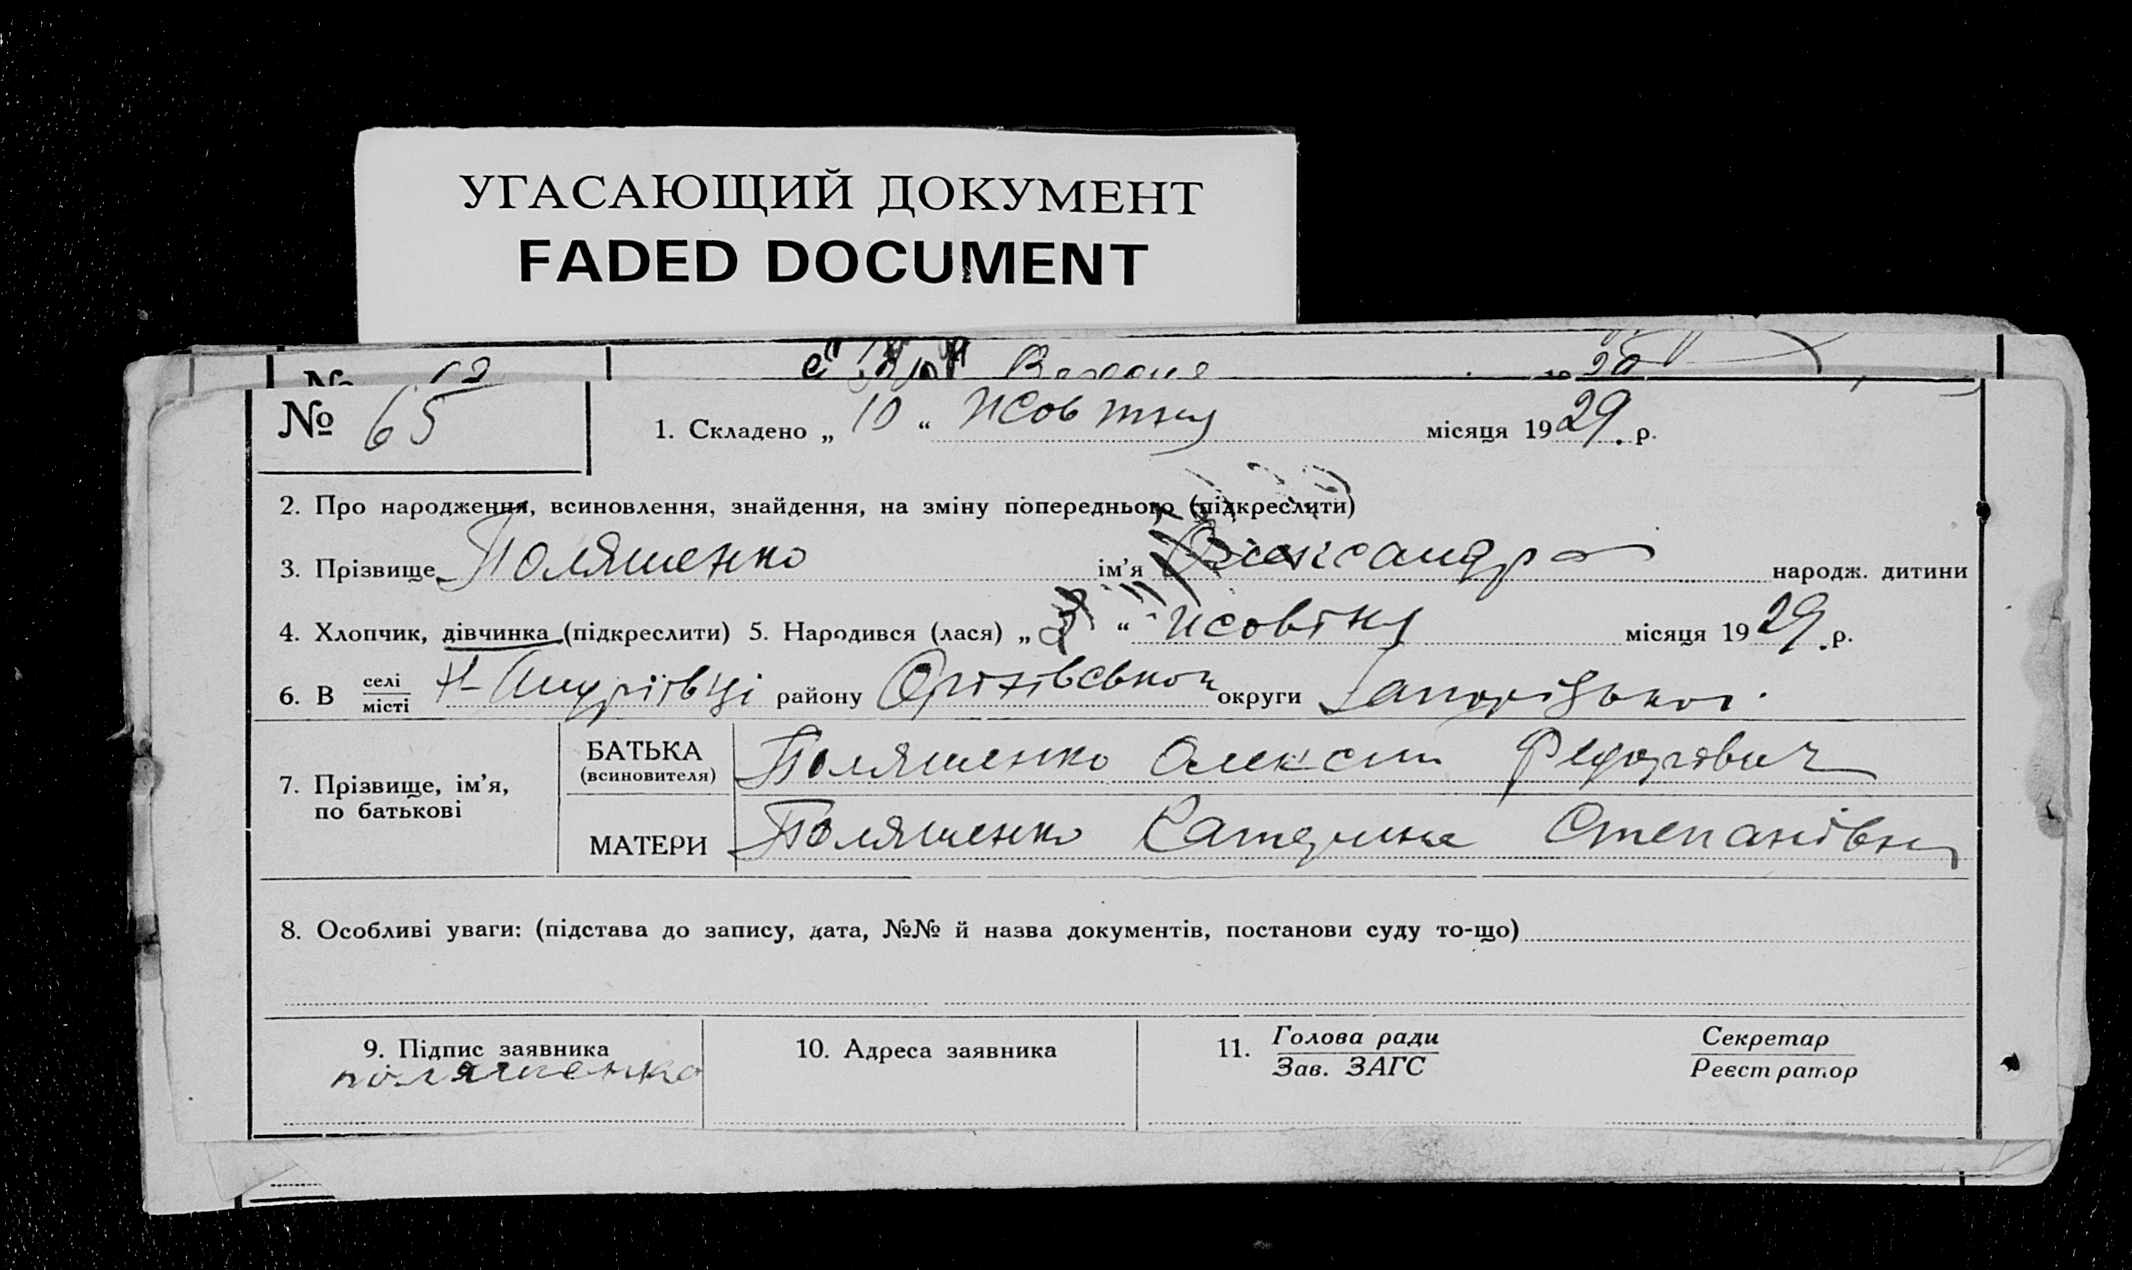 УГАСАЮЩИЙ ДОКУМЕНТ
FADED DOCUMENT
№ 65 1. Складено „ 10 “ Жовтня місяця 1929 р.
2. Про народження, всиновлення, знайдення, на зміну попереднього (підкреслити)
3. Прізвище Поляшенко ім’я Олександра народж. дитини
4. Хлопчик, дівчинка (підкреслити) 5. Народився (лася) „ “ Жовтня місяця 1929 р.
6. В селі місті Н-Андріївці району Оріхівської округи Запорізької.
7. Прізвище, ім’я, по батькові
БАТЬКА (всиновителя) Поляшенко Олексій Федорович
МАТЕРИ Поляшенко Катерина Степанівна
8. Особливі уваги: (підстава до запису, дата, №№ й назва документів, постанови суду то-що)
9. Підпис заявника 10. Адреса заявника 11. Голова ради Зав. ЗАГС Секретар Реєстратор
поляшенко